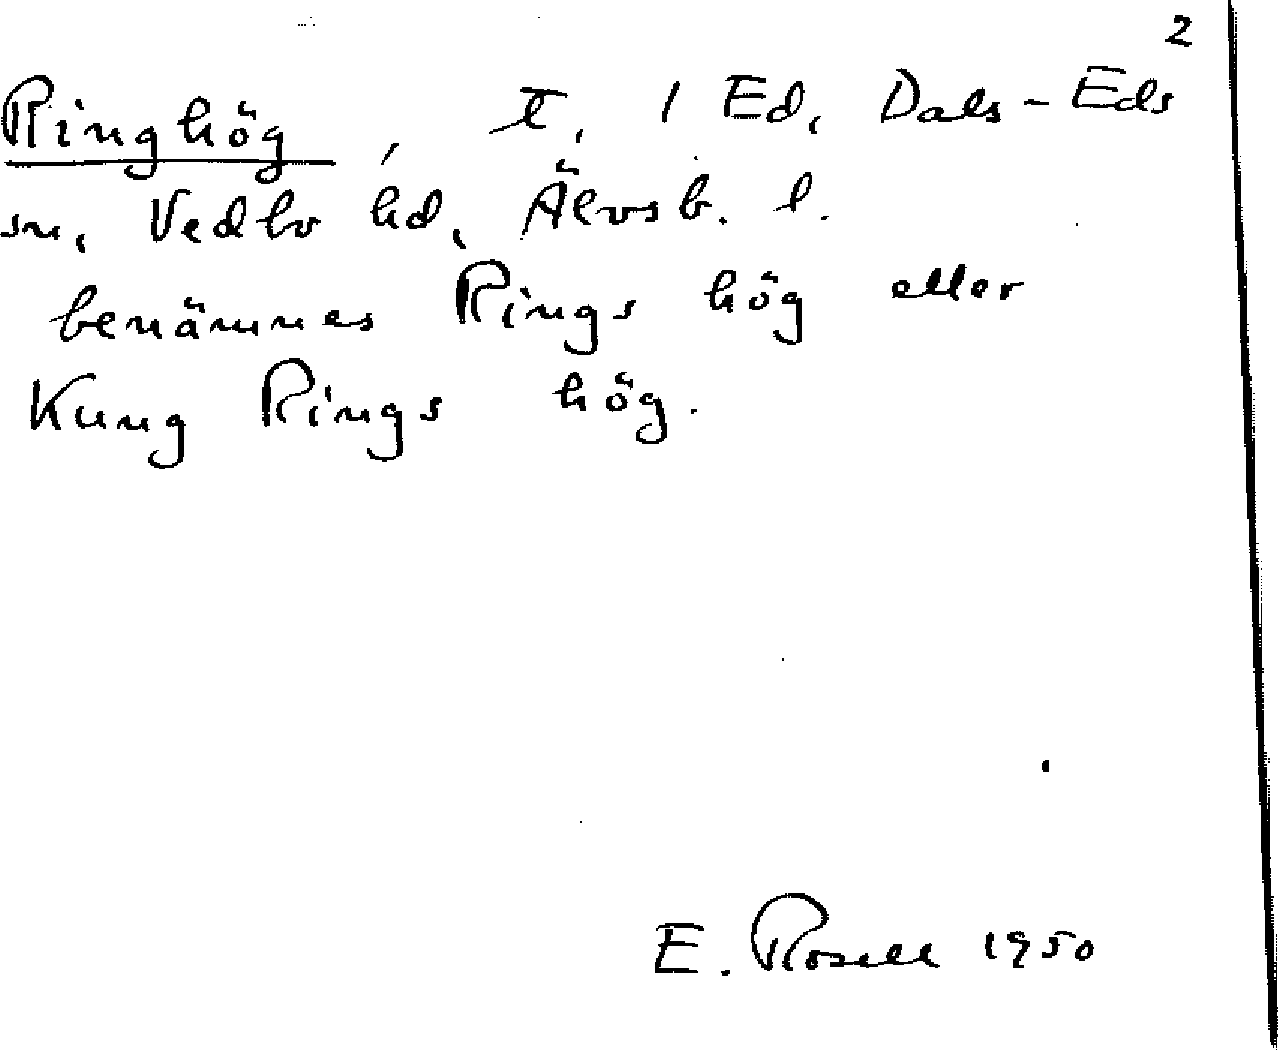 2
Ringhög, t. 1 Ed, Dals-Eds
sn, Vedbo hd, Älvsb. l.
benämnes Rings hög eller
Kung Rings hög.
E. Rosell 1950